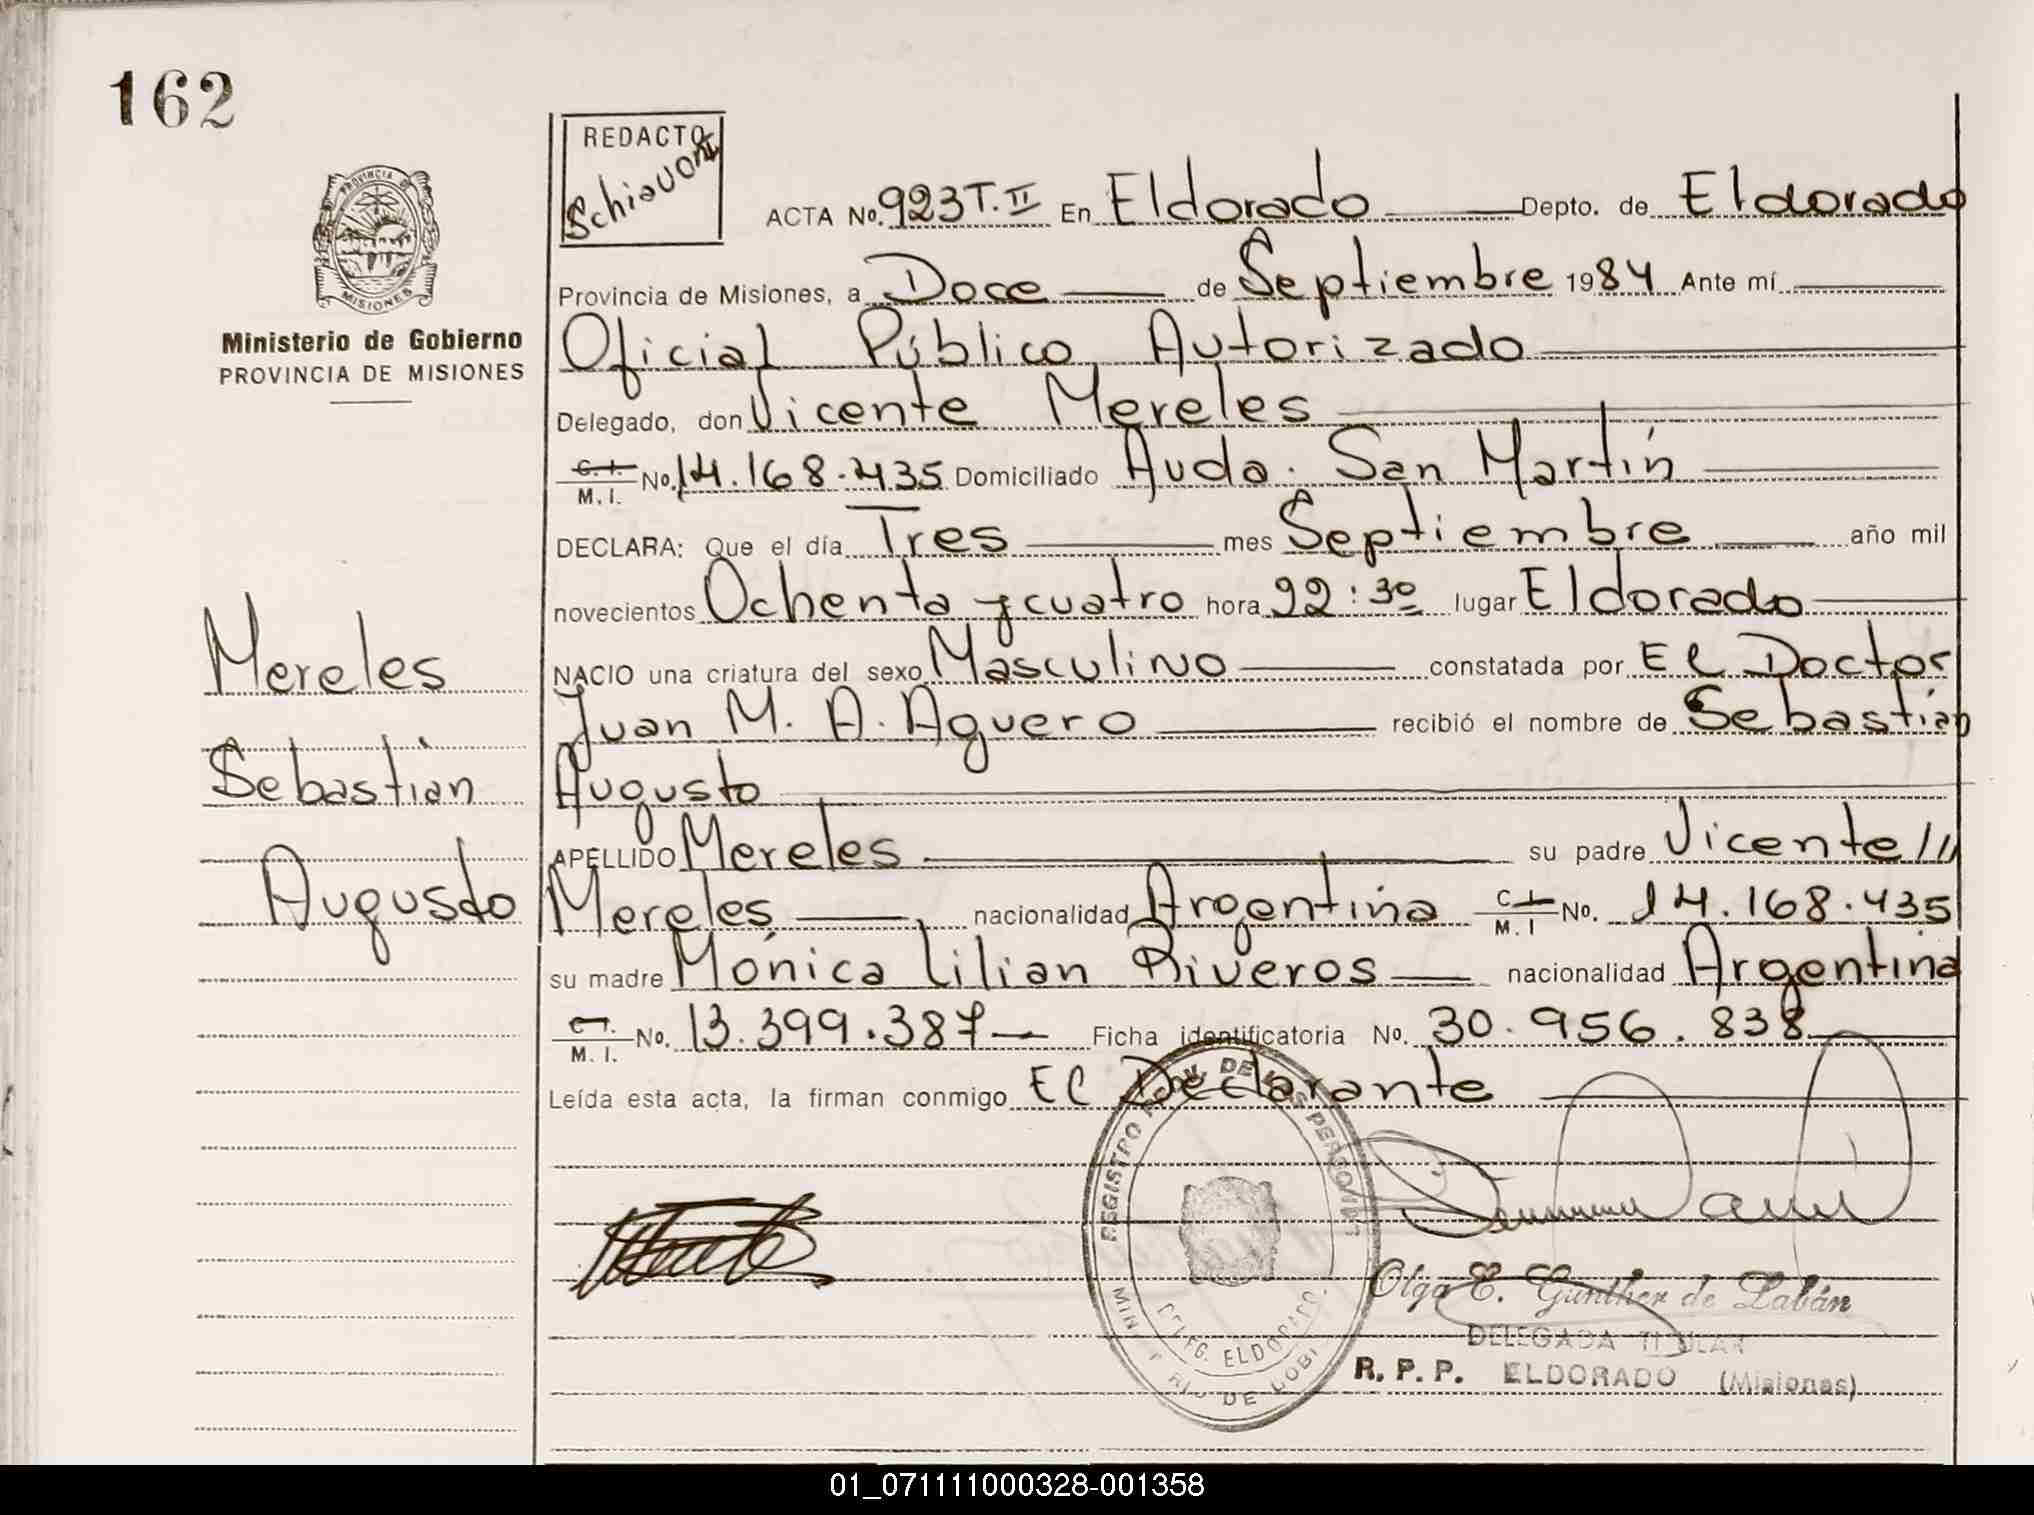 162
REDACTO
Schiavoni
PROVINCIA DE
MISIONES
Ministerio de Gobierno
PROVINCIA DE MISIONES
ACTA No. 923 T. II En Eldorado Depto. de Eldorado
Provincia de Misiones, a Doce de Septiembre 1984 Ante mí
Oficial Público Autorizado
Delegado, don Vicente Mereles
C.I. M.I. No. 14.168.435 Domiciliado Avda. San Martín
DECLARA: Que el día Tres mes Septiembre año mil
novecientos Ochenta y cuatro hora 22:30 lugar Eldorado
NACIO una criatura del sexo Masculino constatada por El Doctor
Juan M. A. Aguero recibió el nombre de Sebastián
Augusto
APELLIDO Mereles su padre Vicente ///
Mereles nacionalidad Argentina C.I. M.I No. 14.168.435
su madre Mónica Lilian Riveros nacionalidad Argentina
C.I. M.I. No. 13.399.387 Ficha identificatoria No. 30.956.838
Leída esta acta, la firman conmigo El Declarante
Mereles
Sebastián
Augusto
REGISTRO DE LAS PERSONAS
DELEG. ELDORADO
Olga E. Günther de Labán
DELEGADA TITULAR
R. P. P. ELDORADO (Misiones)
01_071111000328-001358